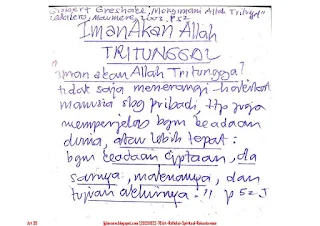 Gisbert Greshake, "Mengimani Allah Tritunggal"
Ledalero, Maumere, 2003, p.52
Iman Akan Allah
TRITUNGGAL
"Iman akan Allah Tritunggal
tidak saja menerangi hakekat
manusia sbg pribadi, ttp juga
memperjelas bgm keadaan
dunia, atau lebih tepat:
bgm keadaan ciptaan, da
sarnya, maknanya, dan
tujuan akhirnya." p 52